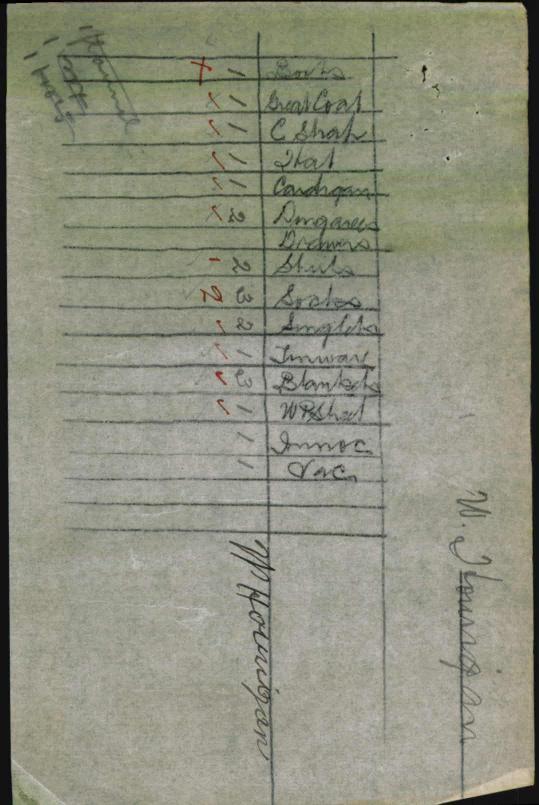 W. Hourigan
Boots 1 X
Great Coat 1 X
C Strap 1 ✓
Hat 1 ✓
Cardigan 1 ✓
Dungarees 2 ✓
Drawers
Shirts 2 1
Socks 3 2
Singlets 2 ✓
Tinware 1 ✓
Blankets 3 ✓
WP Sheet 1 ✓
Innoc 1
Vac 1
W Hourigan